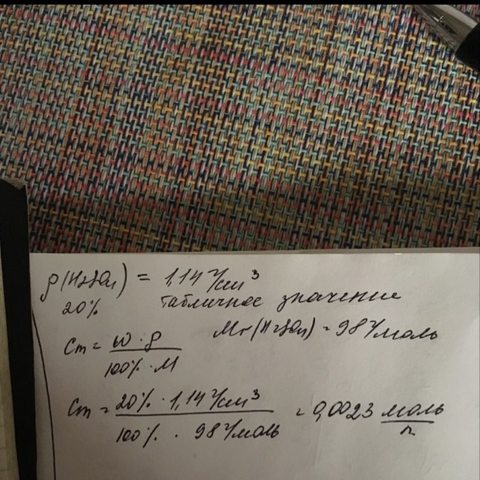 ρ(H₂SO₄) = 1,14 г/см³
20% табличное значение
Cm = ω · ρ / 100% · M Mr(H₂SO₄) = 98 г/моль
Cm = 20% · 1,14 г/см³ / 100% · 98 г/моль = 0,0023 моль/л